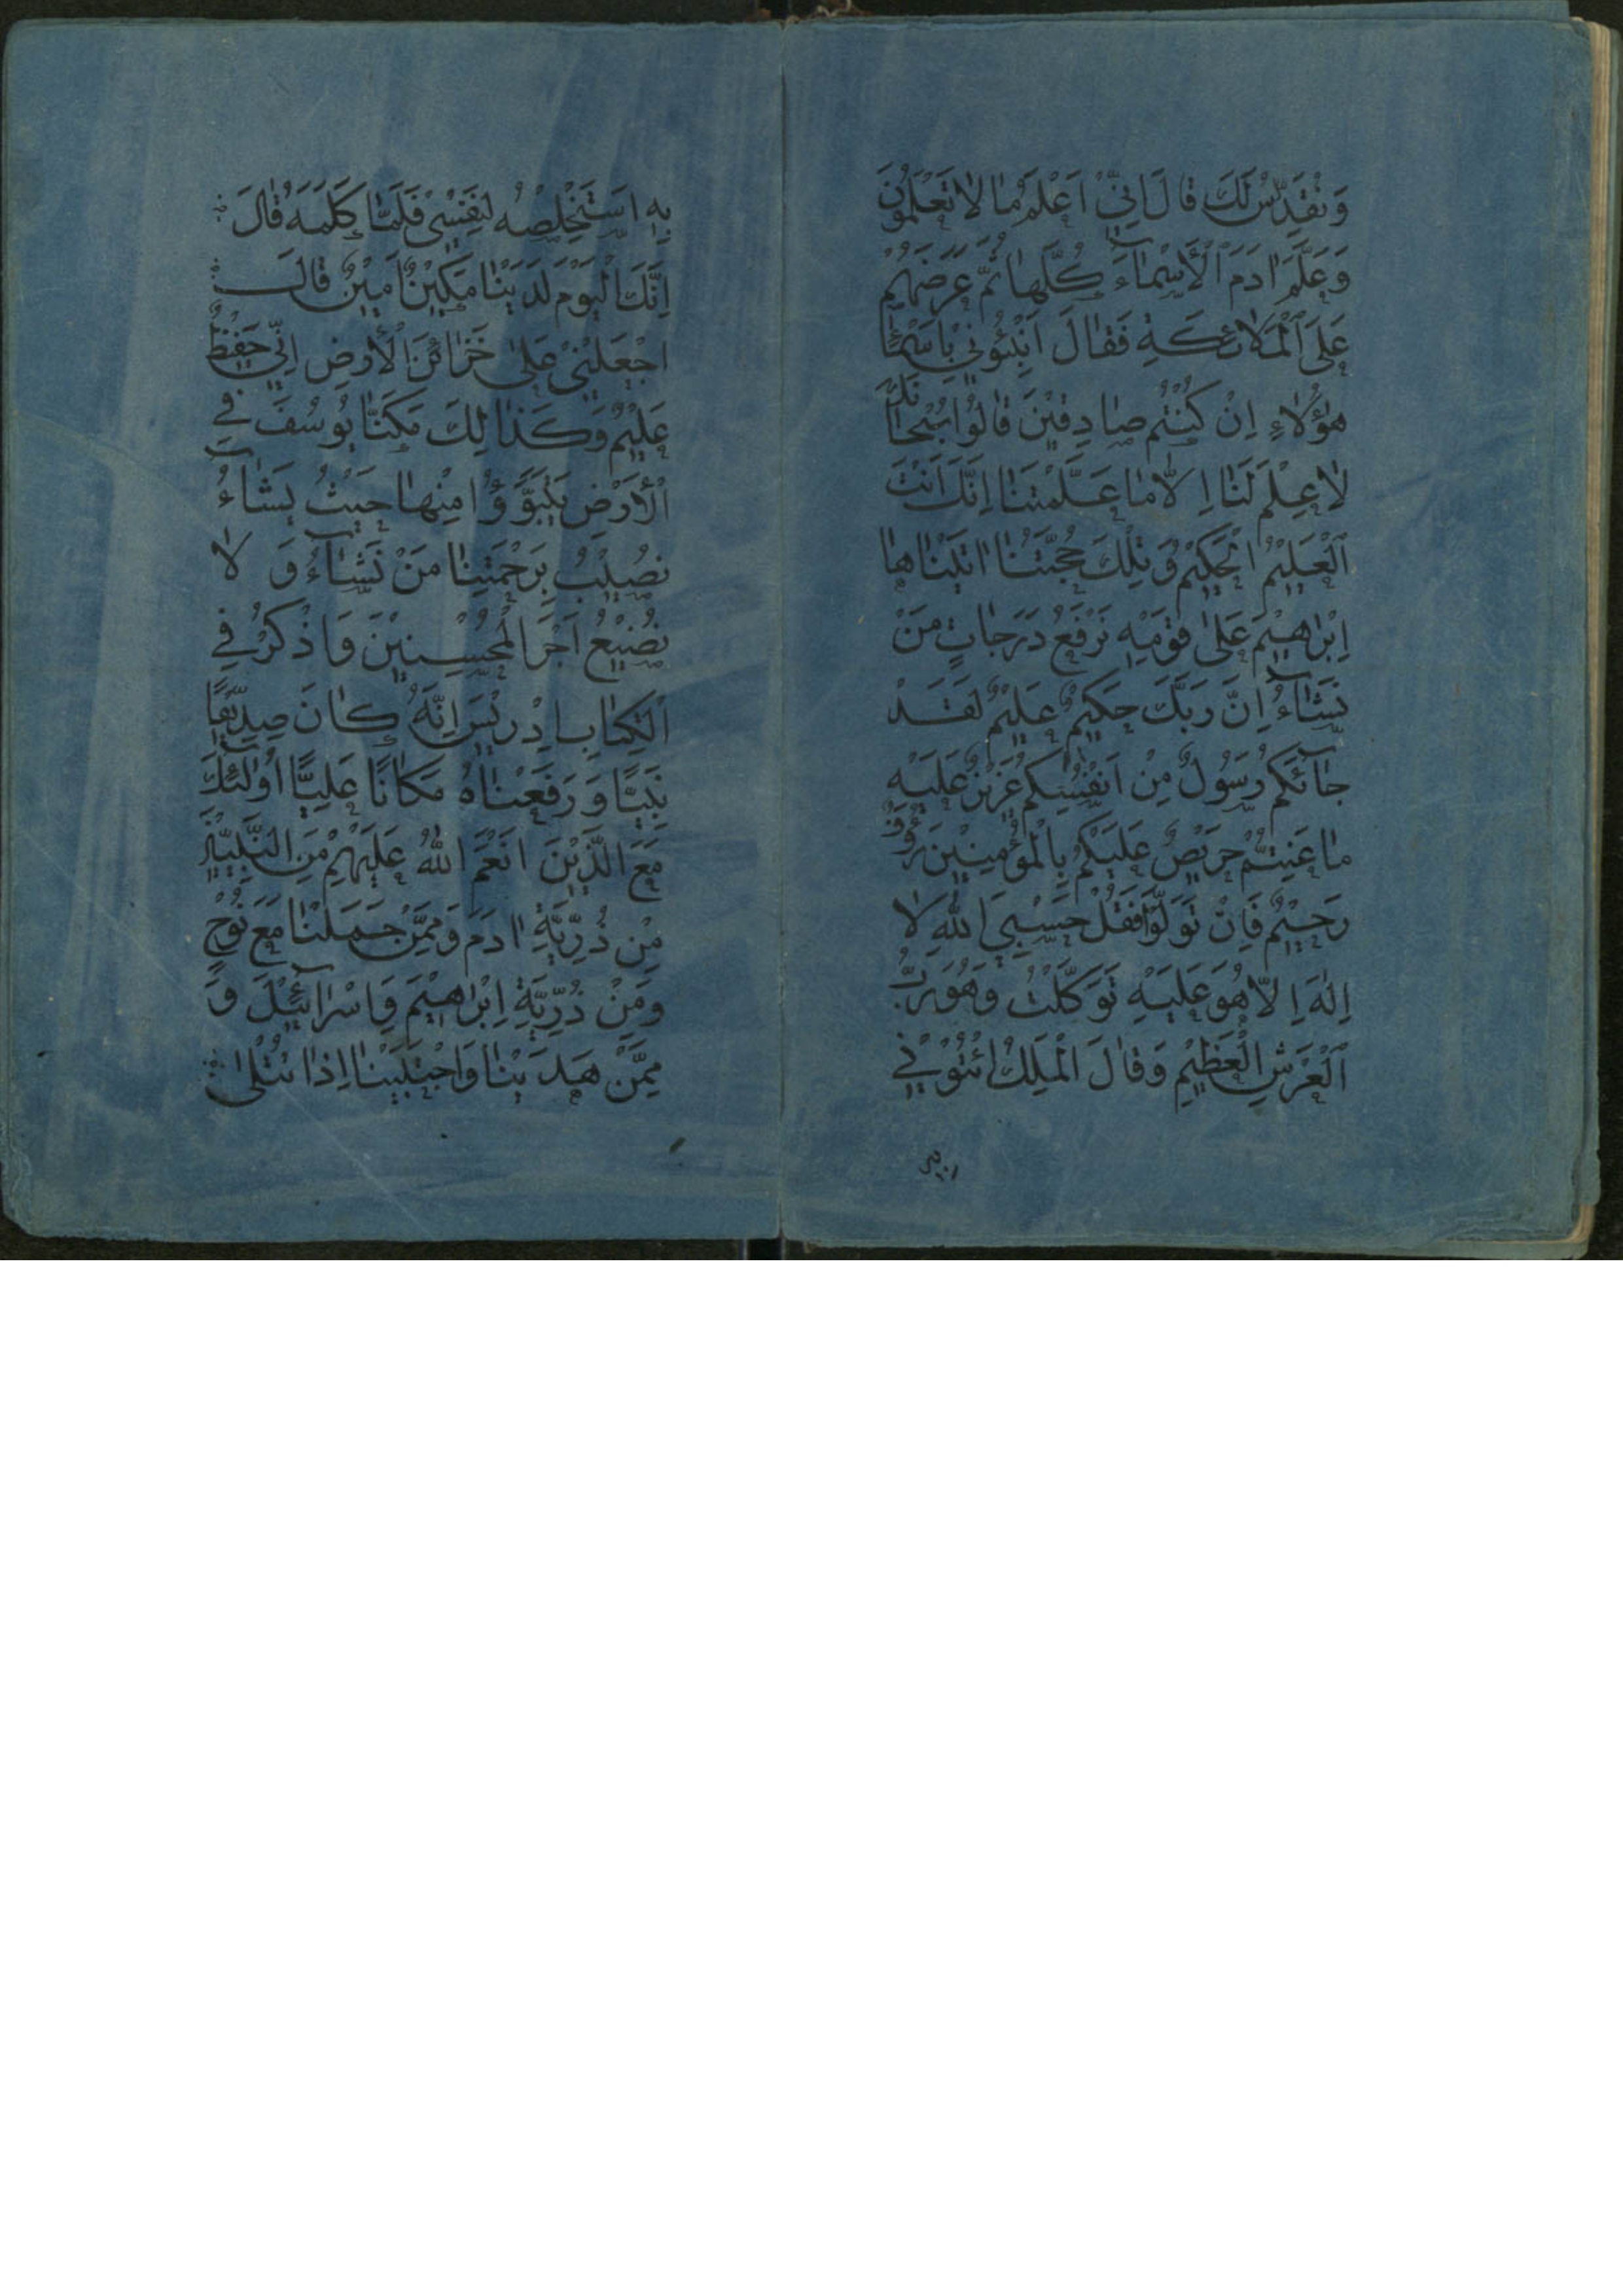 وَنُقَدِّسُ لَكَ قَالَ اِنِّيْ اَعْلَمُ مٰا لاٰ تَعْلَمُوْنَ
وَعَلَّمَ اٰدَمَ الْاَسْمٰآءَ كُلَّهٰا ثُمَّ عَرَضَهُمْ
عَلَى الْمَلاٰئِكَةِ فَقٰالَ اَنْبِئُوْنِيْ بِاَسْمٰآءِ
هٰؤُلاٰءِ اِنْ كُنْتُمْ صٰادِقِيْنَ قٰالُوْا سُبْحٰانَكَ
لاٰ عِلْمَ لَنٰا اِلاّٰ مٰا عَلَّمْتَنٰا اِنَّكَ اَنْتَ
الْعَلِيْمُ الْحَكِيْمُ وَتِلْكَ حُجَّتُنٰا اٰتَيْنٰاهٰا
اِبْرٰاهِيْمَ عَلىٰ قَوْمِهِ نَرْفَعُ دَرَجٰاتٍ مَنْ
نَشٰآءُ اِنَّ رَبَّكَ حَكِيْمٌ عَلِيْمٌ لَقَدْ
جٰآئَكُمْ رَسُوْلٌ مِنْ اَنْفُسِكُمْ عَزِيْزٌ عَلَيْهِ
مٰا عَنِتُّمْ حَرِيْصٌ عَلَيْكُمْ بِالْمُؤْمِنِيْنَ رَؤُفٌ
رَحِيْمٌ فَاِنْ تَوَلَّوْا فَقُلْ حَسْبِيَ اللّٰهُ لاٰ
اِلٰهَ اِلاّٰ هُوَ عَلَيْهِ تَوَكَّلْتُ وَهُوَ رَبُّ
الْعَرْشِ الْعَظِيْمِ وَقٰالَ الْمَلِكُ ائْتُوْنِيْ
بِهِ اَسْتَخْلِصْهُ لِنَفْسِيْ فَلَمّٰا كَلَّمَهُ قٰالَ
اِنَّكَ الْيَوْمَ لَدَيْنٰا مَكِيْنٌ اَمِيْنٌ قٰالَ
اجْعَلْنِيْ عَلىٰ خَزٰائِنِ الْاَرْضِ اِنِّيْ حَفِيْظٌ
عَلِيْمٌ وَكَذٰالِكَ مَكَّنّٰا يُوْسُفَ فِي
الْاَرْضِ يَتَبَوَّؤُا مِنْهٰا حَيْثُ يَشٰآءُ
نُصِيْبُ بِرَحْمَتِنٰا مَنْ نَشٰآءُ وَ لاٰ
نُضِيْعُ اَجْرَ الْمُحْسِنِيْنَ وَاذْكُرْ فِي
الْكِتٰابِ اِدْرِيْسَ اِنَّهُ كٰانَ صِدِّيْقًا
نَبِيًّا وَ رَفَعْنٰاهُ مَكٰانًا عَلِيًّا اُوْلٰئِكَ
مَعَ الَّذِيْنَ اَنْعَمَ اللّٰهُ عَلَيْهِمْ مِنَ النَّبِيِّيْنَ
مِنْ ذُرِّيَّةِ اٰدَمَ وَمِمَّنْ حَمَلْنٰا مَعَ نُوْحٍ
وَمِنْ ذُرِّيَّةِ اِبْرٰاهِيْمَ وَاِسْرٰآئِيْلَ وَ
مِمَّنْ هَدَيْنٰا وَاجْتَبَيْنٰا اِذٰا تُتْلىٰ